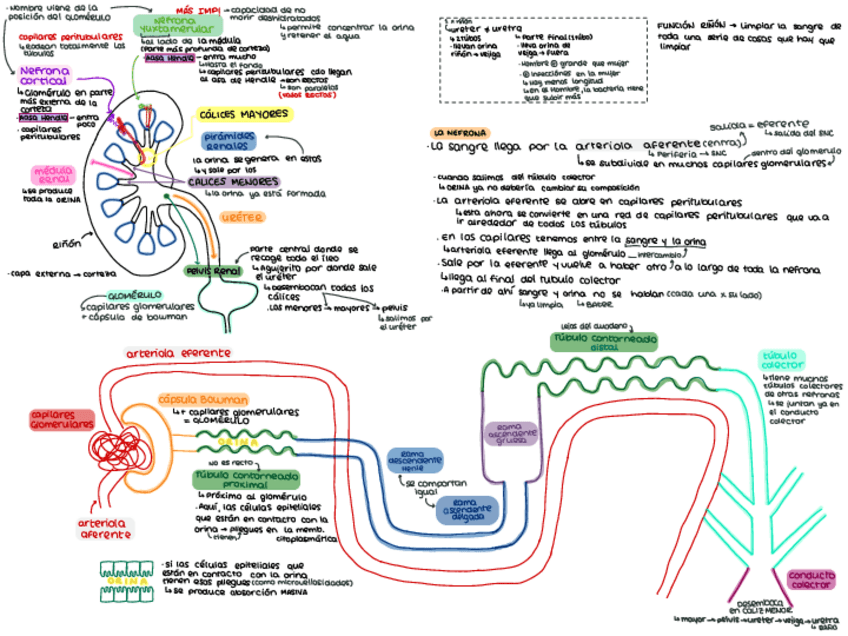 · Nombre viene de la
posición del glomérulo
capilares peritubulares
↳ rodean totalmente los
túbulos
MÁS IMP! → capacidad de no
morir deshidratados
↳ permite concentrar la orina
y retener el agua
Nefrona
yuxtamedular
↳ al lado de la médula
(parte más profunda de corteza)
· Rasa Henle → entra mucho
↳ Hasta el fondo
↳ capilares peritubulares cdo llegan
al asa de Henle → son RECTOS
↳ son paralelos
(vasos rectos)
Nefrona
cortical
↳ Glomérulo en parte
más externa de la
corteza
· Rasa Henle → entra
poco
· capilares
peritubulares
CÁLICES MAYORES
pirámides
renales
la orina se genera en estas
↳ y sale por los
CÁLICES MENORES
↳ la orina ya está formada
médula
renal
↳ se produce
toda la ORINA
URÉTER
riñón
· capa externa → corteza
Pelvis Renal
parte central donde se
recoge todo el
↳ Agujerito por donde sale
el uréter
↳ Desembocan todos los
cálices
· Las menores → mayores → pelvis
↳ salimos por
el uréter
GLOMÉRULO
↳ capilares glomerulares
+ cápsula de bowman
x riñón
uréter ≠ uretra
↳ 2 tubos
· llevan orina
riñón → vejiga
↳ parte final (1 tubo)
· lleva orina de
vejiga → fuera
· Hombre grande que mujer
infecciones en la mujer
↳ Hay menos longitud
↳ en el Hombre, la bacteria tiene
que subir más
FUNCIÓN RIÑÓN → Limpiar la sangre de
toda una serie de cosas que hay que
limpiar
LA NEFRONA
salida = eferente
↳ salida del SNC
· La sangre llega por la arteriola aferente (entra)
↳ Periferia → SNC
dentro del glomerulo
↳ se subdivide en muchos capilares glomerulares
· cuando salimos del túbulo colector
↳ ORINA ya no debería cambiar su composición
· La arteriola eferente se abre en capilares peritubulares
↳ esta ahora se convierte en una red de capilares peritubulares que va a
ir alrededor de todos los túbulos
· en los capilares tenemos entre la sangre y la orina
↳ arteriola eferente llega al glomérulo intercambio
· Sale por la eferente y vuelve a haber otro a lo largo de toda la nefrona
↳ llega al final del túbulo colector
· A partir de ahí sangre y orina no se hablan (cada una x su lado)
↳ ya limpia ↳ Báter
arteriola eferente
cápsula Bowman
↳ + capilares glomerulares
= GLOMÉRULO
capilares
Glomerulares
ORINA
no es recto
Túbulo contorneado
proximal
↳ Próximo al glomérulo
· Aquí, las células epiteliales
que están en contacto con la
orina → pliegues en la memb.
tienen citoplasmática
arteriola
aferente
ORINA
· si las células epiteliales que
están en contacto con la orina
tienen esos pliegues (como microvellosidades)
↳ se produce absorción MASIVA
Rama
descendente
↳ se comportan
igual
Rama
ascendente
delgada
Rama
ascendente
gruesa
Túbulo contorneado
distal
túbulo
colector
↳ tiene muchos
túbulos colectores
de otras nefronas
↳ se juntan ya en
el conducto
colector
conducto
colector
desemboca
en CÁLIZ MENOR
↳ mayor → pelvis → uréter → vejiga → uretra